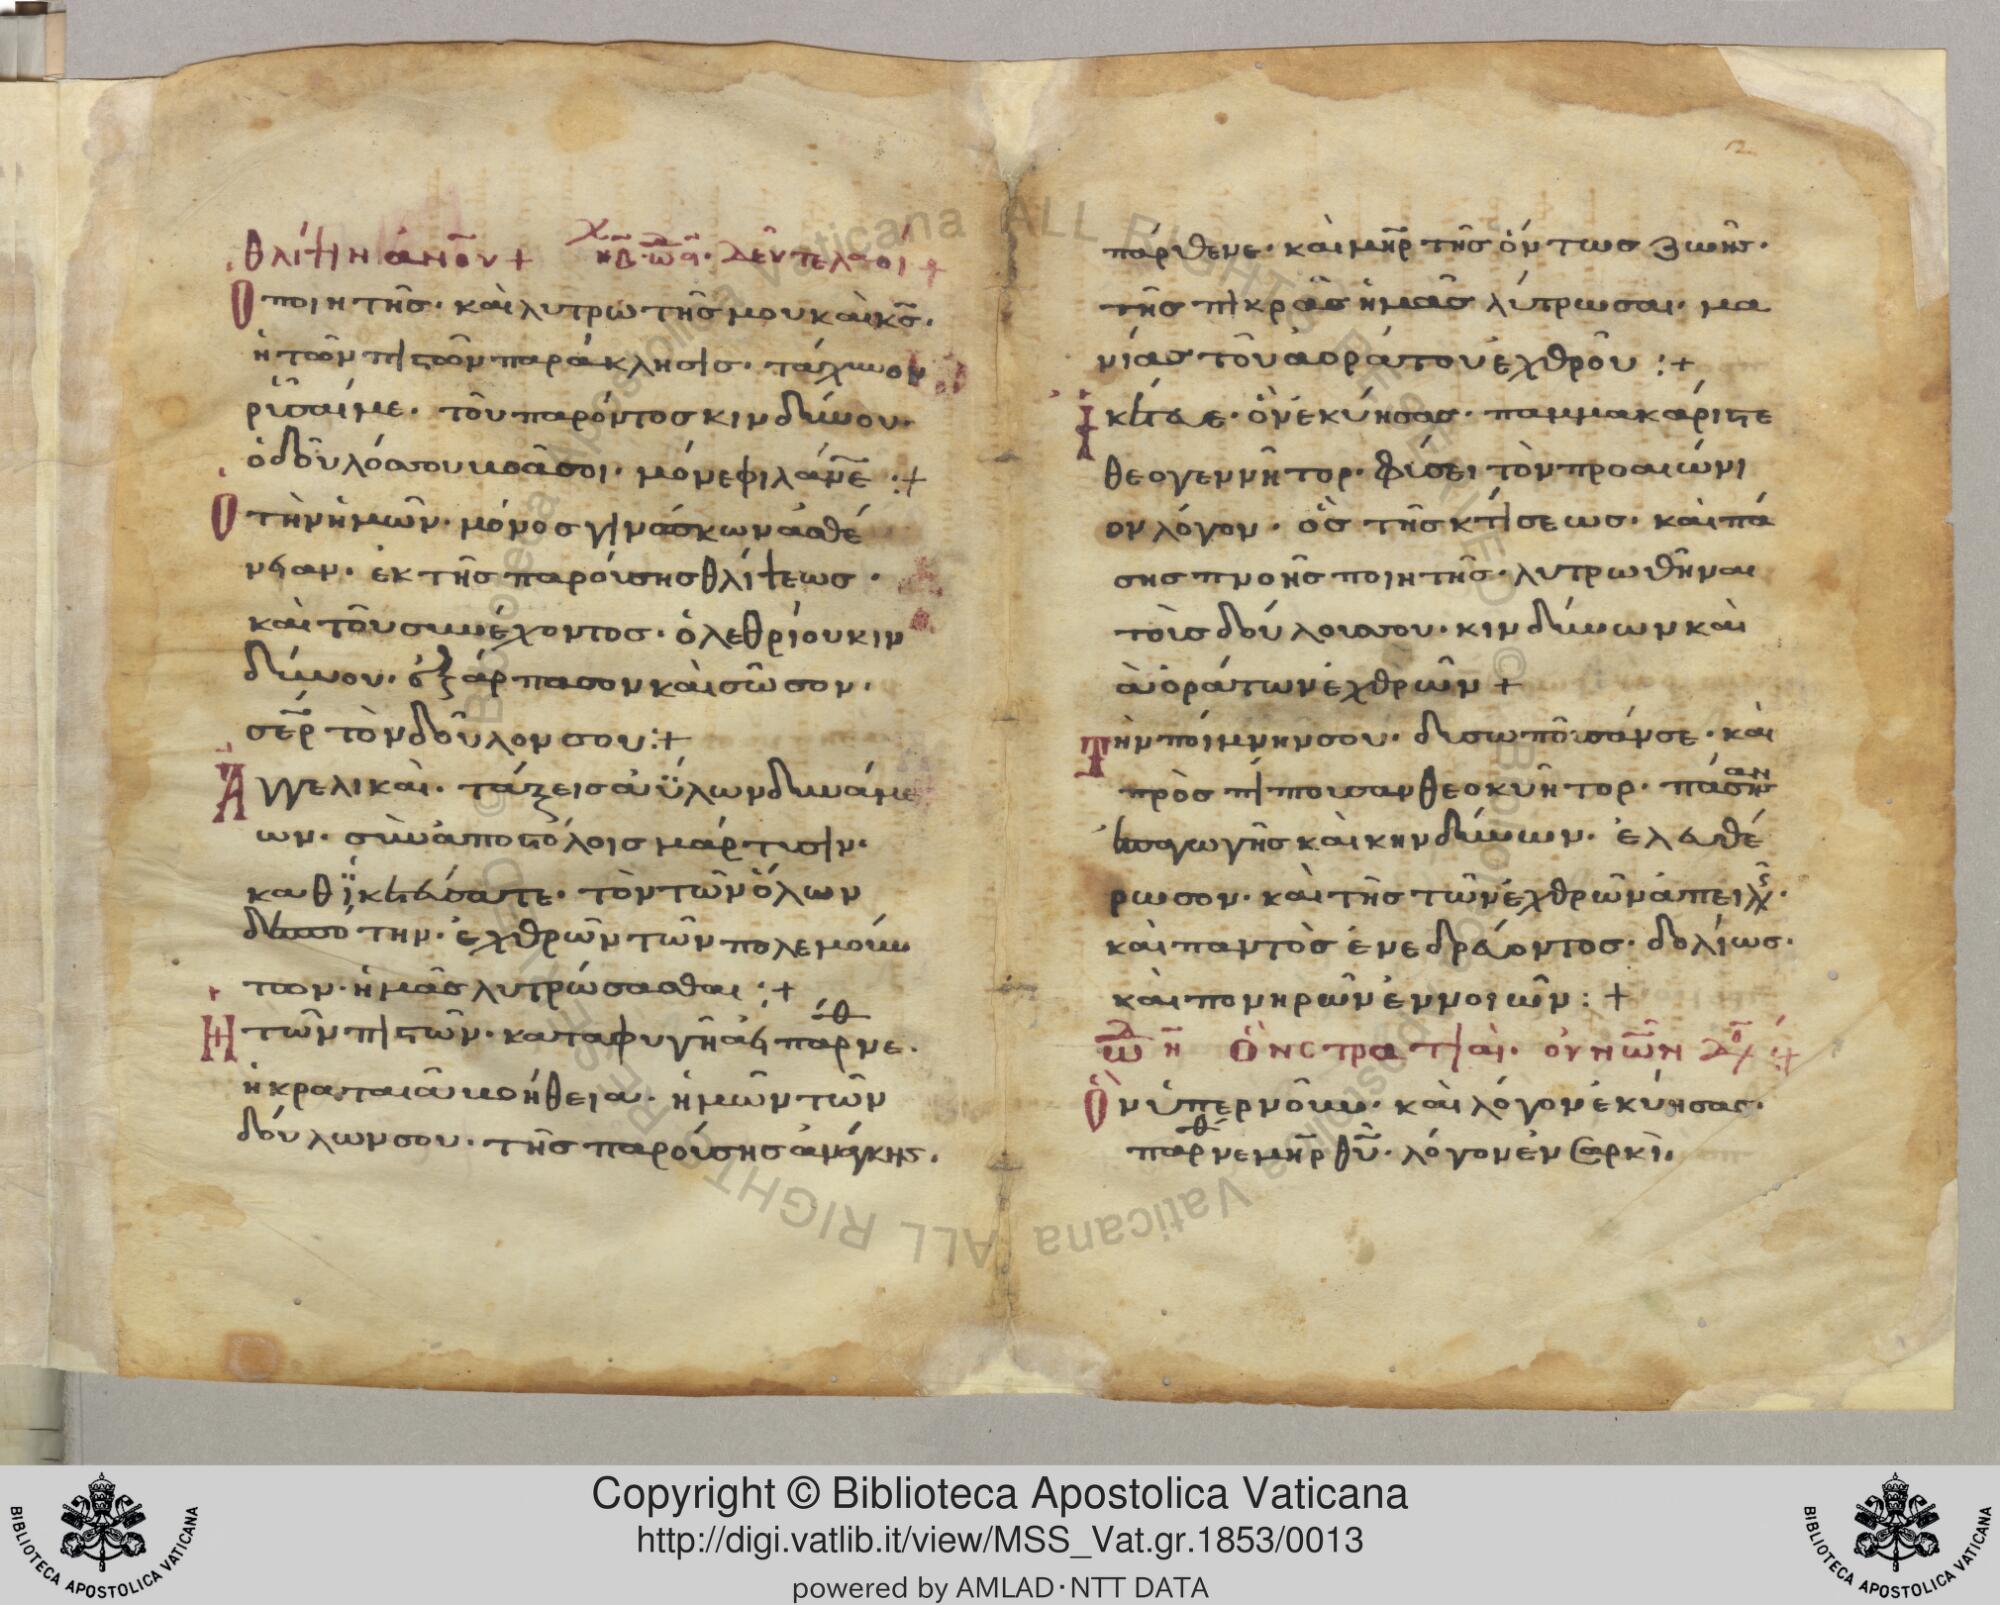 θλίψιν ἀν̅ου + ἦχ β ᾠ α Δεῦτε λαοί +
Ὁ ποιητῆς· καὶ λυτρωτῆς μου καὶ κ̅ς·
ἡ τῶν πιστῶν παράκλησις· τάχυνον
ῥῦσαί με· τοῦ παρόντος κινδύνου·
ὁ δοῦλός σου βοᾶ σοι· μόνε φιλάν̅ε :+
Ὁ τὴν ἡμῶν· μόνος γινώσκων ἀσθέ
νειαν· ἐκ τῆς παρούσης θλίψεως·
καὶ τοῦ συνέχοντος· ὀλεθρίου κιν
δύνου· ἐξάρπασον καὶ σῶσον·
σ̅ε̅ρ τὸν δοῦλον σου :+
Ἀγγελικαὶ· τάξεις ἀΰλων δυνάμε
ων· σὺν ἀποστόλοις μάρτυσιν·
καθϊκετεύσατε· τὸν τῶν ὅλων
δεσπότην· ἐχθρῶν τῶν πολεμούν
των· ἡμᾶς λυτρώσασθαι :+
Ἡ τῶν πιστῶν· καταφυγῆ ἀεὶ παρθνε·
ἡ κραταιᾶ βοήθεια· ἡμῶν τῶν
δούλων σου· τῆς παρούσης ἀνάγκης·
πάρθενε· καὶ μ̅η̅ρ τῆς ὄντως ζωῆς·
τῆς πικρᾶς ἡμᾶς λύτρωσαι· μα
νίας τοῦ ἀοράτου ἐχθροῦ :+
Ἱκέτευε· ὃν ἐκύησας· παμμακάριστε
θεογεννῆτορ· φύσει τὸν προαιώνι
ον λόγον· ὃς τῆς κτίσεως· καὶ πά
σης πνοῆς ποιητῆς· λυτρωθῆναι
τοὶς δούλοις σου· κινδύνων καὶ
ἀοράτων ἐχθρῶν +
Τὴν ποίμνην σου· δυσωποῦσάν σε· καὶ
πρὸς πίπτουσαν θεοκυῆτορ· πάσης
ἐπαγωγῆς καὶ κηνδύνων· ἐλευθέ
ρωσον· καὶ τῆς τῶν ἐχθρῶν ἀπειλῆς·
καὶ παντὸς ἐνεδρεύοντος· δολίως·
καὶ πονηρῶν ἐννοιῶν : +
ᾠ̅δ η̅ Ὃν στρατιαὶ· οὐνῶν +
Ὃν ὑπὲρ νοῦν· καὶ λόγον ἐκύησας·
παρθνε μ̅η̅ρ θ̅υ̅· λόγον ἐν σαρκὶ·
Copyright © Biblioteca Apostolica Vaticana
http://digi.vatlib.it/view/MSS_Vat.gr.1853/0013
powered by AMLAD·NTT DATA
BIBLIOTECA APOSTOLICA VATICANA
BIBLIOTECA APOSTOLICA VATICANA